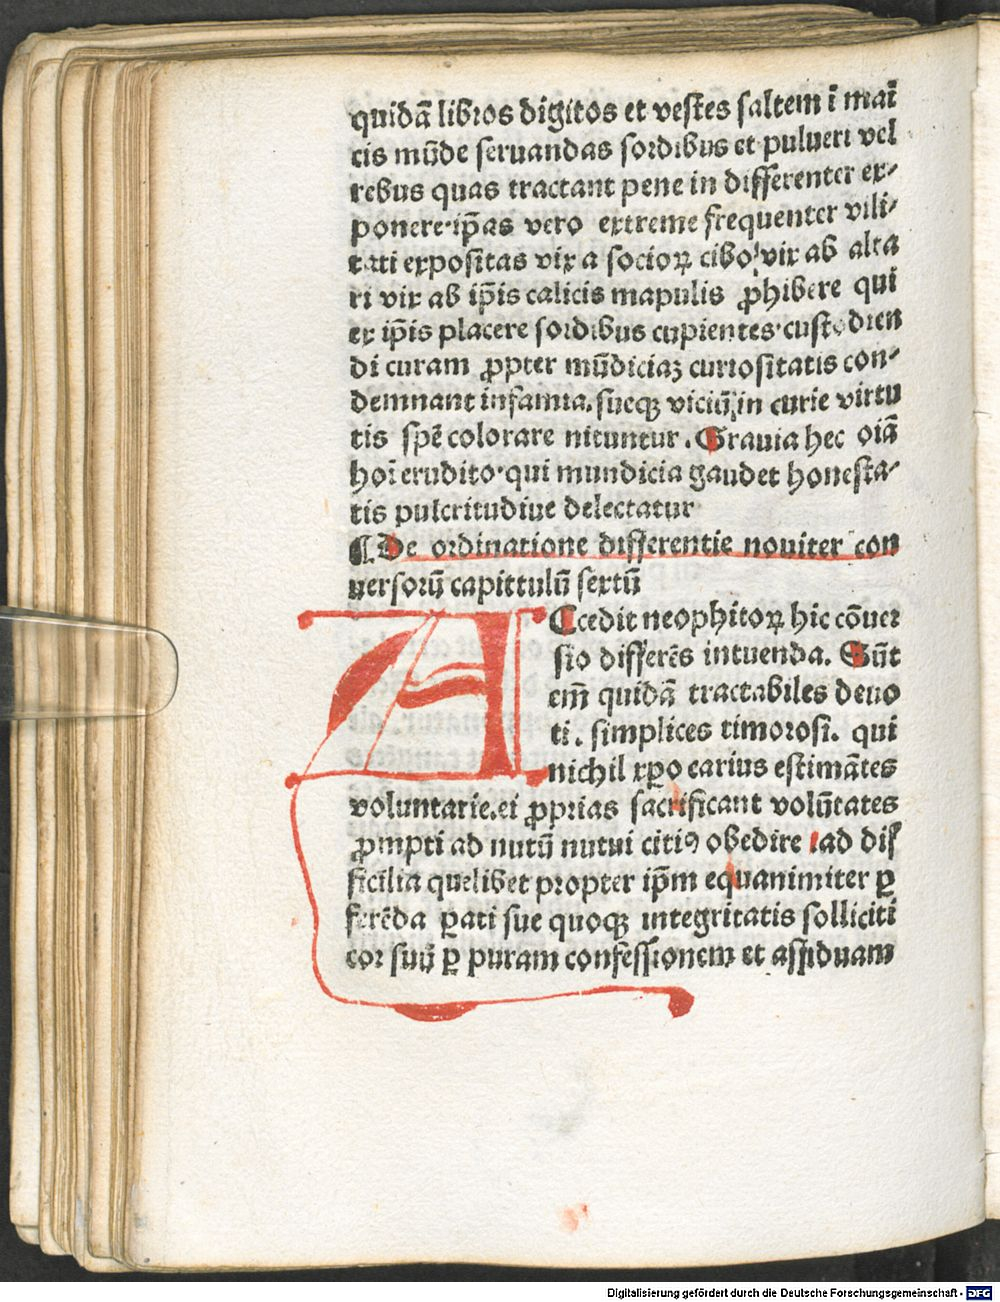 quidā libros digitos et vestes saltem ī maī
cis mūde seruandas sordibus et pulueri vel
rebus quas tractant pene in differenter ex⸗
ponere·ip̄as vero extreme frequenter vili⸗
tati expositas vix a socioꝝ cibo vix ab alta
ri vix ab ip̄is calicis mapulis ꝓhibere qui
ex ip̄is placere sordibus cupientes·custodien
di curam ꝓpter mūdiciaꝫ curiositatis con⸗
demnant infamia.sueqꝫ viciū in curie virtu
tis spē colorare nituntur. Grauia hec oīā
hoī erudito·qui mundicia gaudet honesta⸗
tis pulcritudiue delectatur
¶ De ordinatione differentie nouiter con
uersorū capittulū sextū
ACcedit neophitoꝝ hic cōuer
sio differēs intuenda. Sūt
em̄ quidā tractabiles deuo
ti. simplices timorosi. qui
nichil xp̄o carius estimātes
voluntarie.ei ꝓprias sacrificant volūtates
ꝓmpti ad nutū nutui citiꝰ obedire ad dif
ficilia quelibet propter ip̄m equanimiter ꝑ
ferēda ꝑati sue quoqꝫ integritatis solliciti
cor suū ꝑ puram confessionem et assiduam
Digitalisierung gefördert durch die Deutsche Forschungsgemeinschaft - DFG